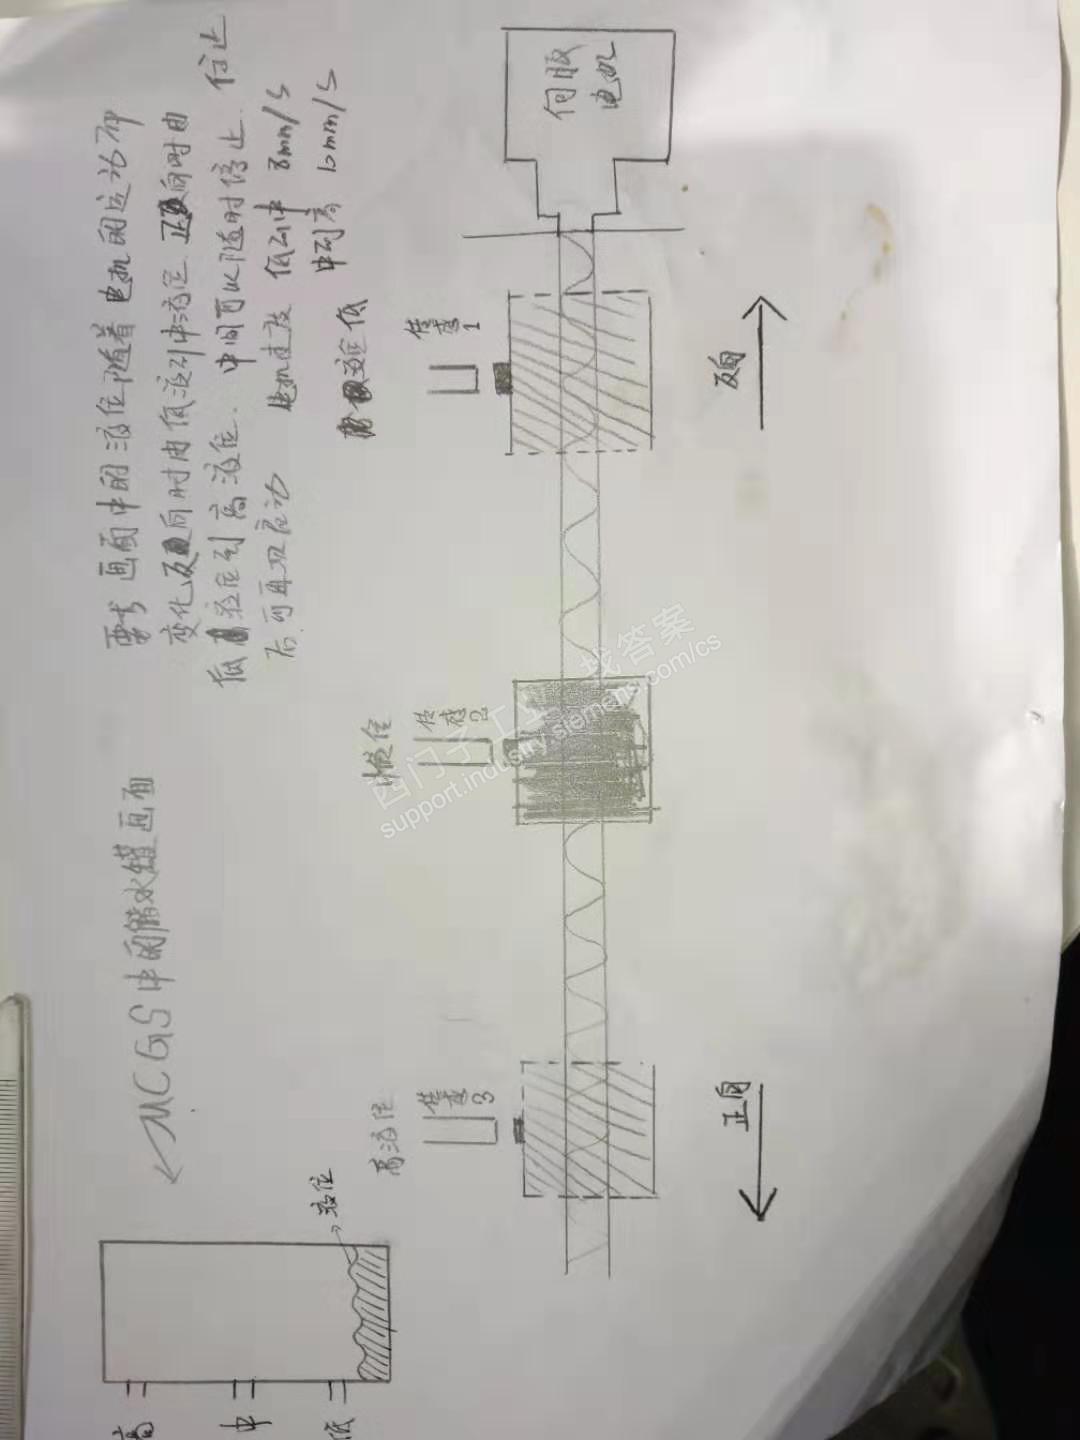 要求画面中的液位随着电机的运动而
变化 反向时由低液到中液位 正向时由
低液位到高液位. 中间可以随时停止. 停止
后.可再次启动
电机速度 低到中 8mm/s
中到高 10mm/s
MCGS中的储水罐画面
高
中
低
液位
伺服
电机
液位低
传感1
中液位
传感2
高液位
传感3
反向
正向
西门子工业 找答案
support.industry.siemens.com/cs